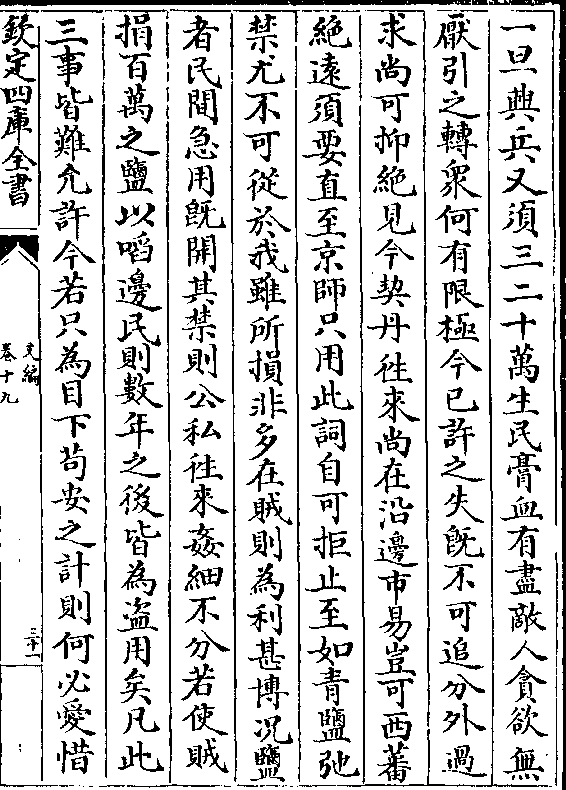 一旦興兵又須三二十萬生民膏血有盡敵人貪欲無
厭引之轉衆何有限極今已許之失既不可追分外過
求尚可抑絶見今契丹徃來尚在沿邊市易豈可西蕃
絶遠須要直至京師只用此詞自可拒止至如青鹽弛
禁尤不可從於我雖所損非多在賊則為利甚博况鹽
者民間急用既開其禁則公私徃來姦細不分若使賊
捐百萬之鹽以啗邊民則數年之後皆為盗用矣凡此
三事皆難允許今若只為目下茍安之計則何必愛惜
欽定四庫全書
文編
卷十九
三十一